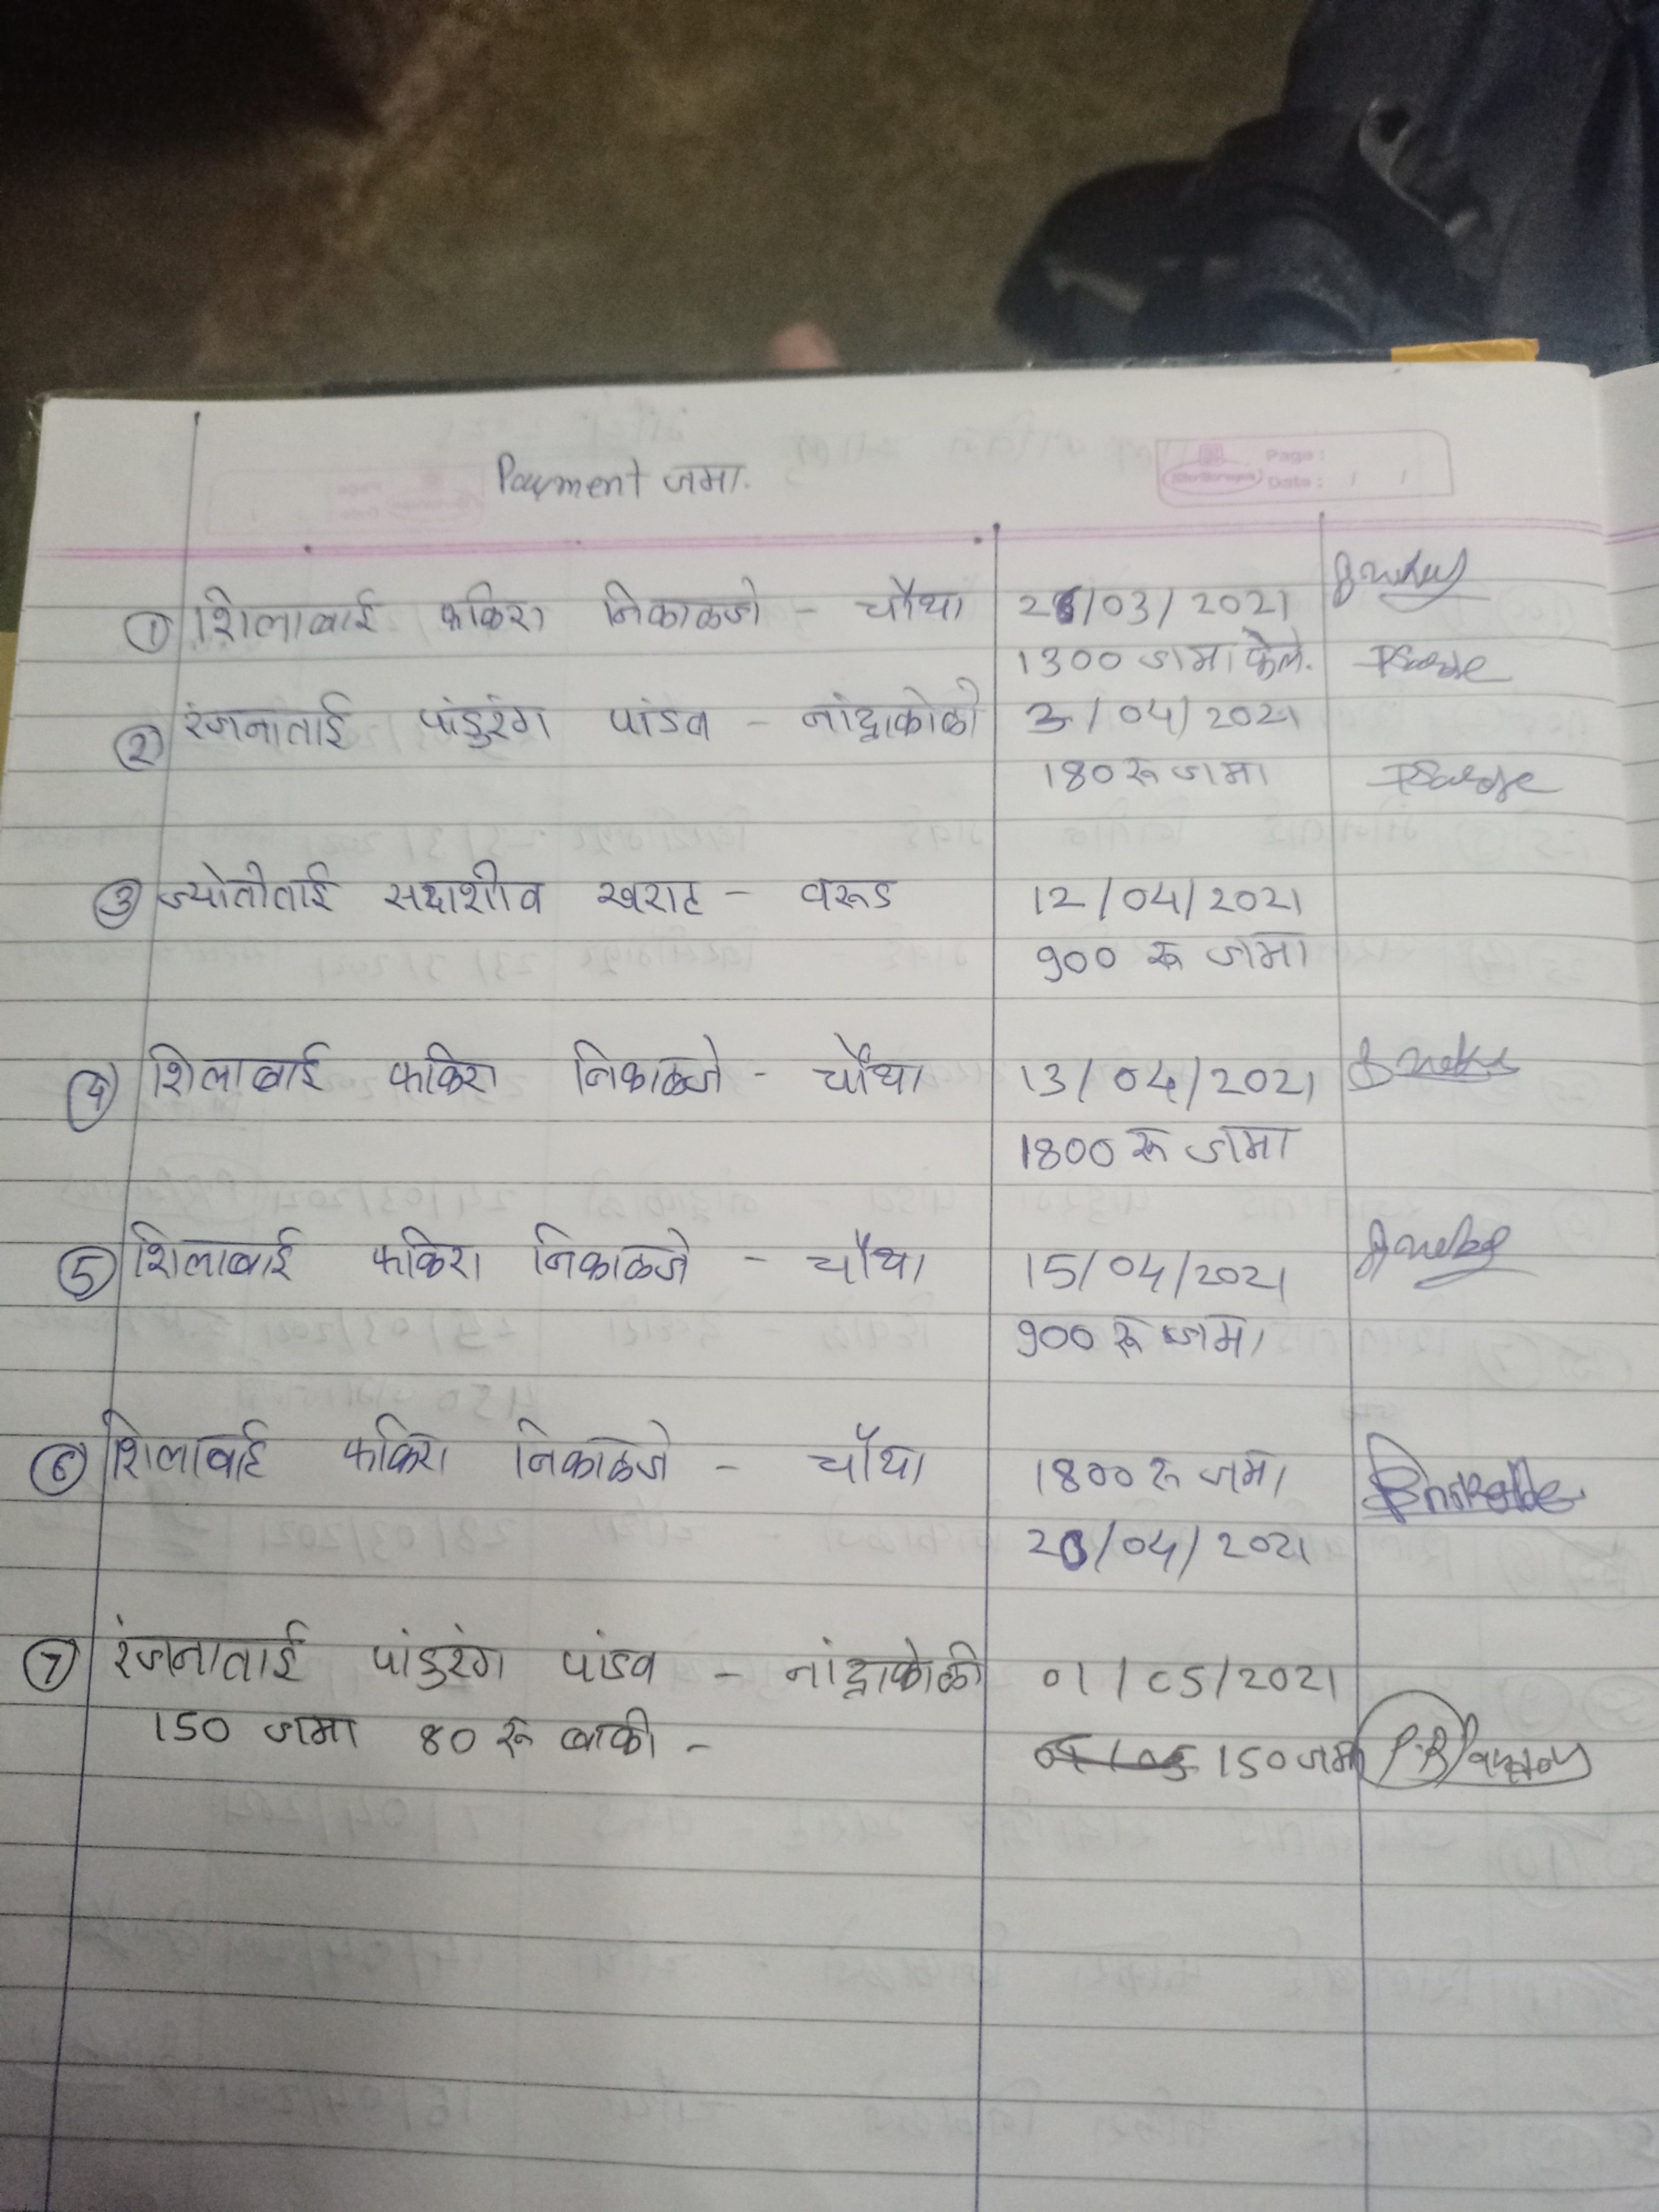 Payment जमा.
Page :
Date : / /
① शिलाबाई फकिरा निकाळजे - चौथा 26/03/2021
1300 जमा केले.
② रंजनाताई पांडुरंग पांडव - नांद्राकोळी 3/04/2021
180 रू जमा
③ ज्योतीताई सदाशीव खरात - वरूड 12/04/2021
900 रू जमा
④ शिलाबाई फकिरा निकाळजे - चौथा 13/04/2021
1800 रू जमा
⑤ शिलाबाई फकिरा निकाळजे - चौथा 15/04/2021
900 रू जमा
⑥ शिलाबाई फकिरा निकाळजे - चौथा 1800 रू जमा
20/04/2021
⑦ रंजनाताई पांडुरंग पांडव - नांद्राकोळी 01/05/2021
150 जमा 80 रू बाकी - 150 जमा